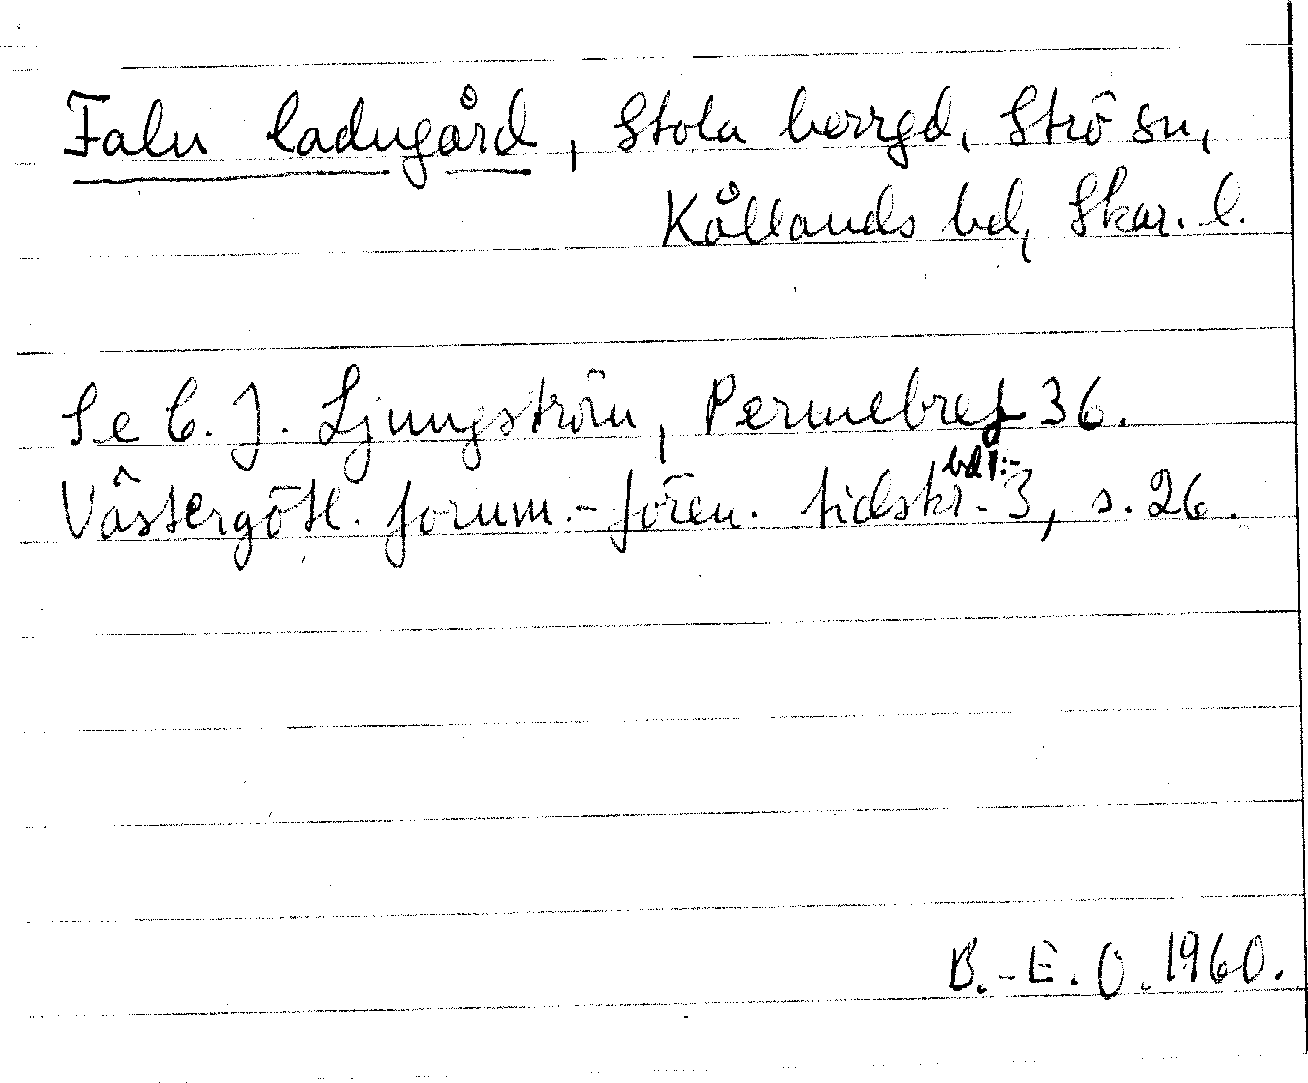 Falu ladugård, Stola herrgd, Strö sn,
Kållands hd, Skar. l.
Se C. J. Ljungström, Permebref 36.
Västergötl. fornm.-fören. tidskr. bd 1:-3, s. 26.
B.-E. O. 1960.